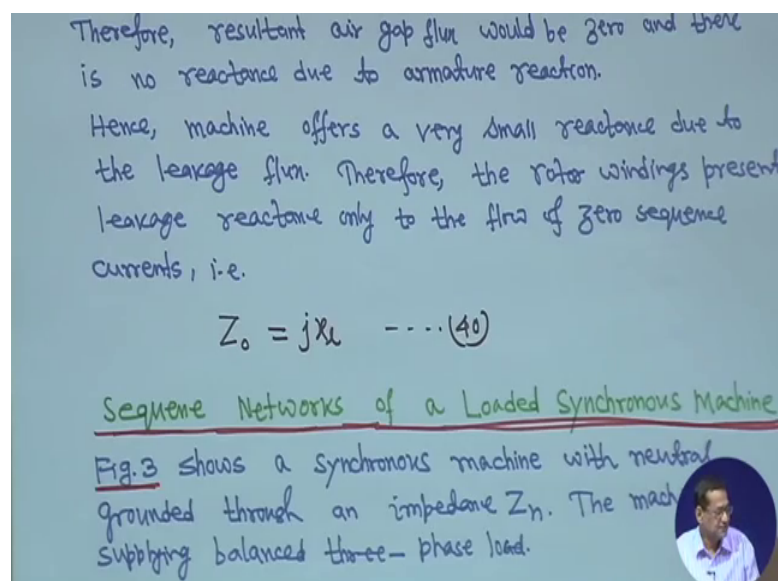 Therefore, resultant air gap flux would be zero and there
is no reactance due to armature reaction.
Hence, machine offers a very small reactance due to
the leakage flux. Therefore, the rotor windings present
leakage reactance only to the flow of zero sequence
currents, i.e.
Z₀ = jxₗ ----(40)
Sequene Networks of a Loaded Synchronous Machine
Fig.3 shows a synchronous machine with neutral
grounded through an impedane Zn. The mach
supplying balanced three-phase load.